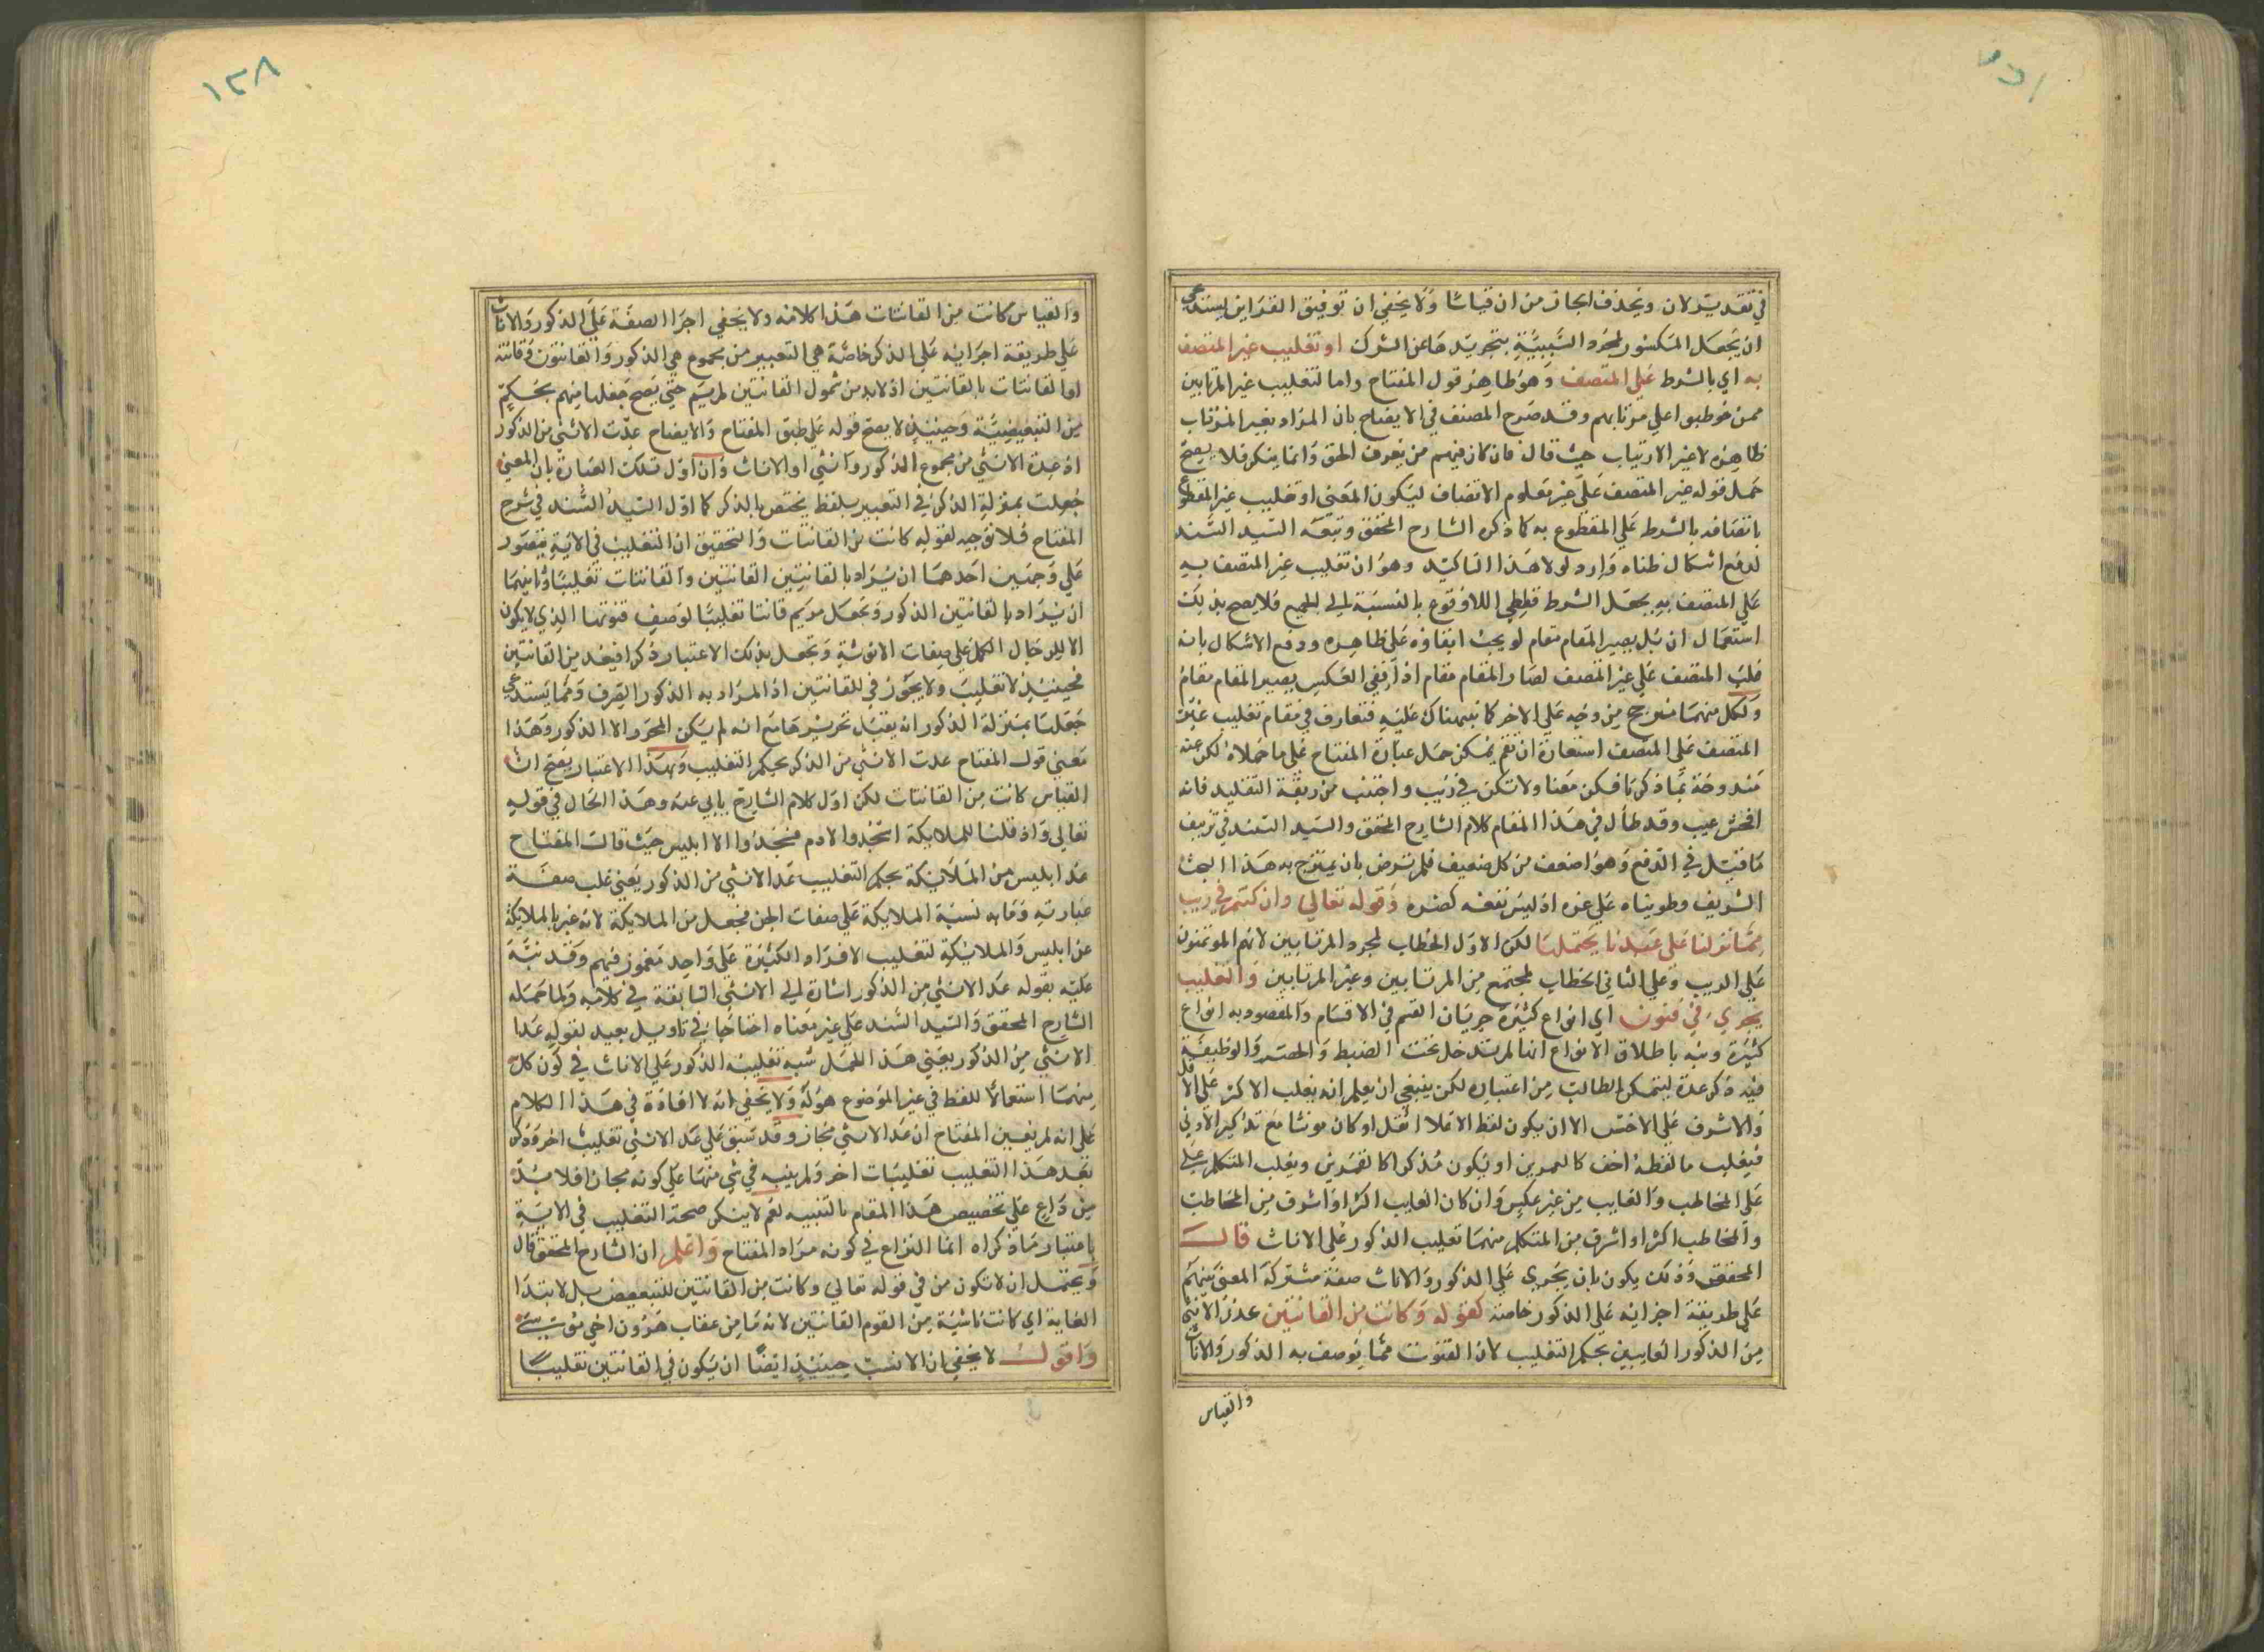 في تقدير لان ويحذف الجاز من ان قياسا ولا يخفي ان توفيق القراين يستدعي
ان يجعل المكسور لمجرد السببية بتجريدها عن الشرك او تغليب غير المتصف
به اي بالشرط علي المتصف وهو ظاهر قول المفتاح واما لتغليب غير المرتابين
ممن خوطبوا علي مرتابهم وقد صرح المصنف في الايضاح بان المراد بغير المرتاب
ظاهره لا غير الارتياب حيث قال فان كان فيهم من يعرف الحق وانما ينكر فلا يصح
حمل قوله غير المتصف علي غير معلوم الاتصاف ليكون المعني او تغليب غير المقطوع
باتصافه بالشرط علي المقطوع به كما ذكره الشارح المحقق وتبعه السيد السند
لدفع اشكال ظناه وارد لولا هذا التاكيد وهو ان تغليب غير المتصف به
علي المتصف به يجعل الشرط قطعي اللاوقوع بالنسبة الي الجميع فلا يصح بذلك
استعمال ان بل يصير المقام مقام لو يجب ابقاوه علي ظاهره ودفع الاشكال بانه
غلب المتصف علي غير المتصف لصار المقام مقام اذا ففي العكس يصير المقام مقام
ولكل منهما مرجح من وجه علي الاخر كما نبهناك عليه فتعارف في مقام تغليب غير
المتصف علي المتصف استعارة ان نعم يمكن حمل عبارة المفتاح علي ما حملاه لكن عنه
مندوحة بما ذكرنا فكن معنا ولا تكن في ريب واجتنب من ربقة التقليد فانه
افحش عيب وقد طال في هذا المقام كلام الشارح المحقق والسيد السند في تزييف
ما قيل في الدفع وهو اضعف من كل ضعيف فلم نرض بان يمتزج به هذا البحث
الشريف وطويناه علي غره اذ ليس نفعه كضره وقوله تعالي وان كنتم في ريب
مما نزلنا علي عبدنا يحتملهما لكن الاول الخطاب لمجرد المرتابين لانهم الموتمنون
علي الريب وعلي الثاني الخطاب لمجتمع من المرتابين وغير المرتابين والتغليب
يجري في فنون اي انواع كثيرة جريان القسم في الاقسام والمقصود به انواع
كثيرة ونبه باطلاق الانواع انها لم تدخل تحت الضبط والحصر والوظيفة
فيه ذكر عدة ليتمكن الطالب من اعتباره لكن ينبغي ان يعلم انه يغلب الاكثر علي الاقل
والاشرف علي الاخس الا ان يكون لفظ الاعلا اثقل او كان مونثا مع تذكير الادني
فيغلب ما لفظه اخف كالعمرين او يكون مذكرا كالقمرين ويغلب المتكلم علي
علي المخاطب والغايب من غير عكس وان كان الغايب اكثر او اشرف من المخاطب
والمخاطب اكثر او اشرف من المتكلم منهما تغليب الذكور علي الاناث قال
المحقق وذلك يكون بان يجري علي الذكور والاناث صفة مشتركة المعني بينهم
علي طريقة اجرايه علي الذكور خاصة كقوله وكانت من القانتين عدت الانثي
من الذكور الغايبين بحكم التغليب لان القنوت مما يوصف به الذكور والاناث
والقياس
١٢٨
والقياس كانت من القانتات هذا كلامه ولا يخفي اجرا الصفة علي الذكور والاناث
علي طريقة اجرايه علي الذكر خاصة هي التعبير من مجموع هي الذكور والقانتون وقانتة
او القانتات بالقانتين اذ لابد من شمول القانتين لمريم حتي يصح جعلها منهم بحكم
من التبعيضية وحينيذ لا يصح قوله علي طبق المفتاح والايضاح عدت الانثي من الذكور
اذ عدة الانثي من مجموع الذكور وانثي او الاناث وان اول تلك العبارة بان المعني
جعلت بمنزلة الذكر في التعبير بلفظ يختص بالذكر كما اول السيد السند في شرح
المفتاح فلا توجيه لقوله كانت من القانتات والتحقيق ان التغليب في الاية يتصور
علي وجهين احدهما ان يراد بالقانتين القانتين والقانتات تغليبا وثانيهما
ان يراد بالقانتين الذكور وتجعل مريم قانتا تغليبا لوصف قنوتها الذي لا يكون
الا للرجال الكمل علي صفات الانوثية وتجعل بذلك الاعتبار ذكرا فيعد من القانتين
فحينيذ لا تغليب ولا يجوز في للقانتين اذ المراد به الذكور الصرف ومما يستدعي
جعلها بمنزلة الذكور انه يقبل تحريرها مع انه لم يكن المحرر الا الذكور وهذا
معني قول المفتاح عدت الانثي من الذكر بحكم التغليب وبهذا الاعتبار يصح ان
القياس كانت من القانتات لكن اول كلام الشارح يابي عنه وهذا الحال في قوله
تعالي واذ قلنا للملايكة اسجدوا لادم فسجدوا الا ابليس حيث قال المفتاح
عد ابليس من الملايكة بحكم التغليب عد الانثي من الذكور يعني غلب صفة
عبارته وما به نسبة الملايكة علي صفات الجن فجعل من الملايكة لانه عبر بالملايكة
عن ابليس والملايكة لتغليب الافراد الكثيرة علي واحد مغمور فيهم وقد نبه
عليه بقوله عد الانثي من الذكور اشارة الي الانثي السابقة في كلامه ولما حمله
الشارح المحقق والسيد السند علي غير معناه احتاجا في تاويل بعيد لقوله عدا
الانثي من الذكور يعني هذا الحمل شبه تغليب الذكور علي الاناث في كون كل
منهما استعمالا للفظ في غير الموضوع هو له ولا يخفي انه لا افادة في هذا الكلام
علي انه لم يعين المفتاح ان عد الانثي مجاز وقد سبق علي عد الانثي تغليب اخر وذكر
بعد هذا التغليب تغليبات اخر ولم ينبه في شي منها علي كونه مجازا فلا بد
من داع علي تخصيص هذا المقام بالتنبيه نعم لا ينكر صحة التغليب في الاية
باعتبار ما ذكراه انما النزاع في كونه مراد المفتاح واعلم ان الشارح المحقق قال
ويحتمل ان لا تكون من في قوله تعالي وكانت من القانتين للتبعيض بل لابتدا
الغاية اي كانت ناشئة من القوم القانتين لانها من عقاب هرون اخي موسي
واقول لا يخفي ان الانسب حينيذ ايضا ان يكون في القانتين تغليبا